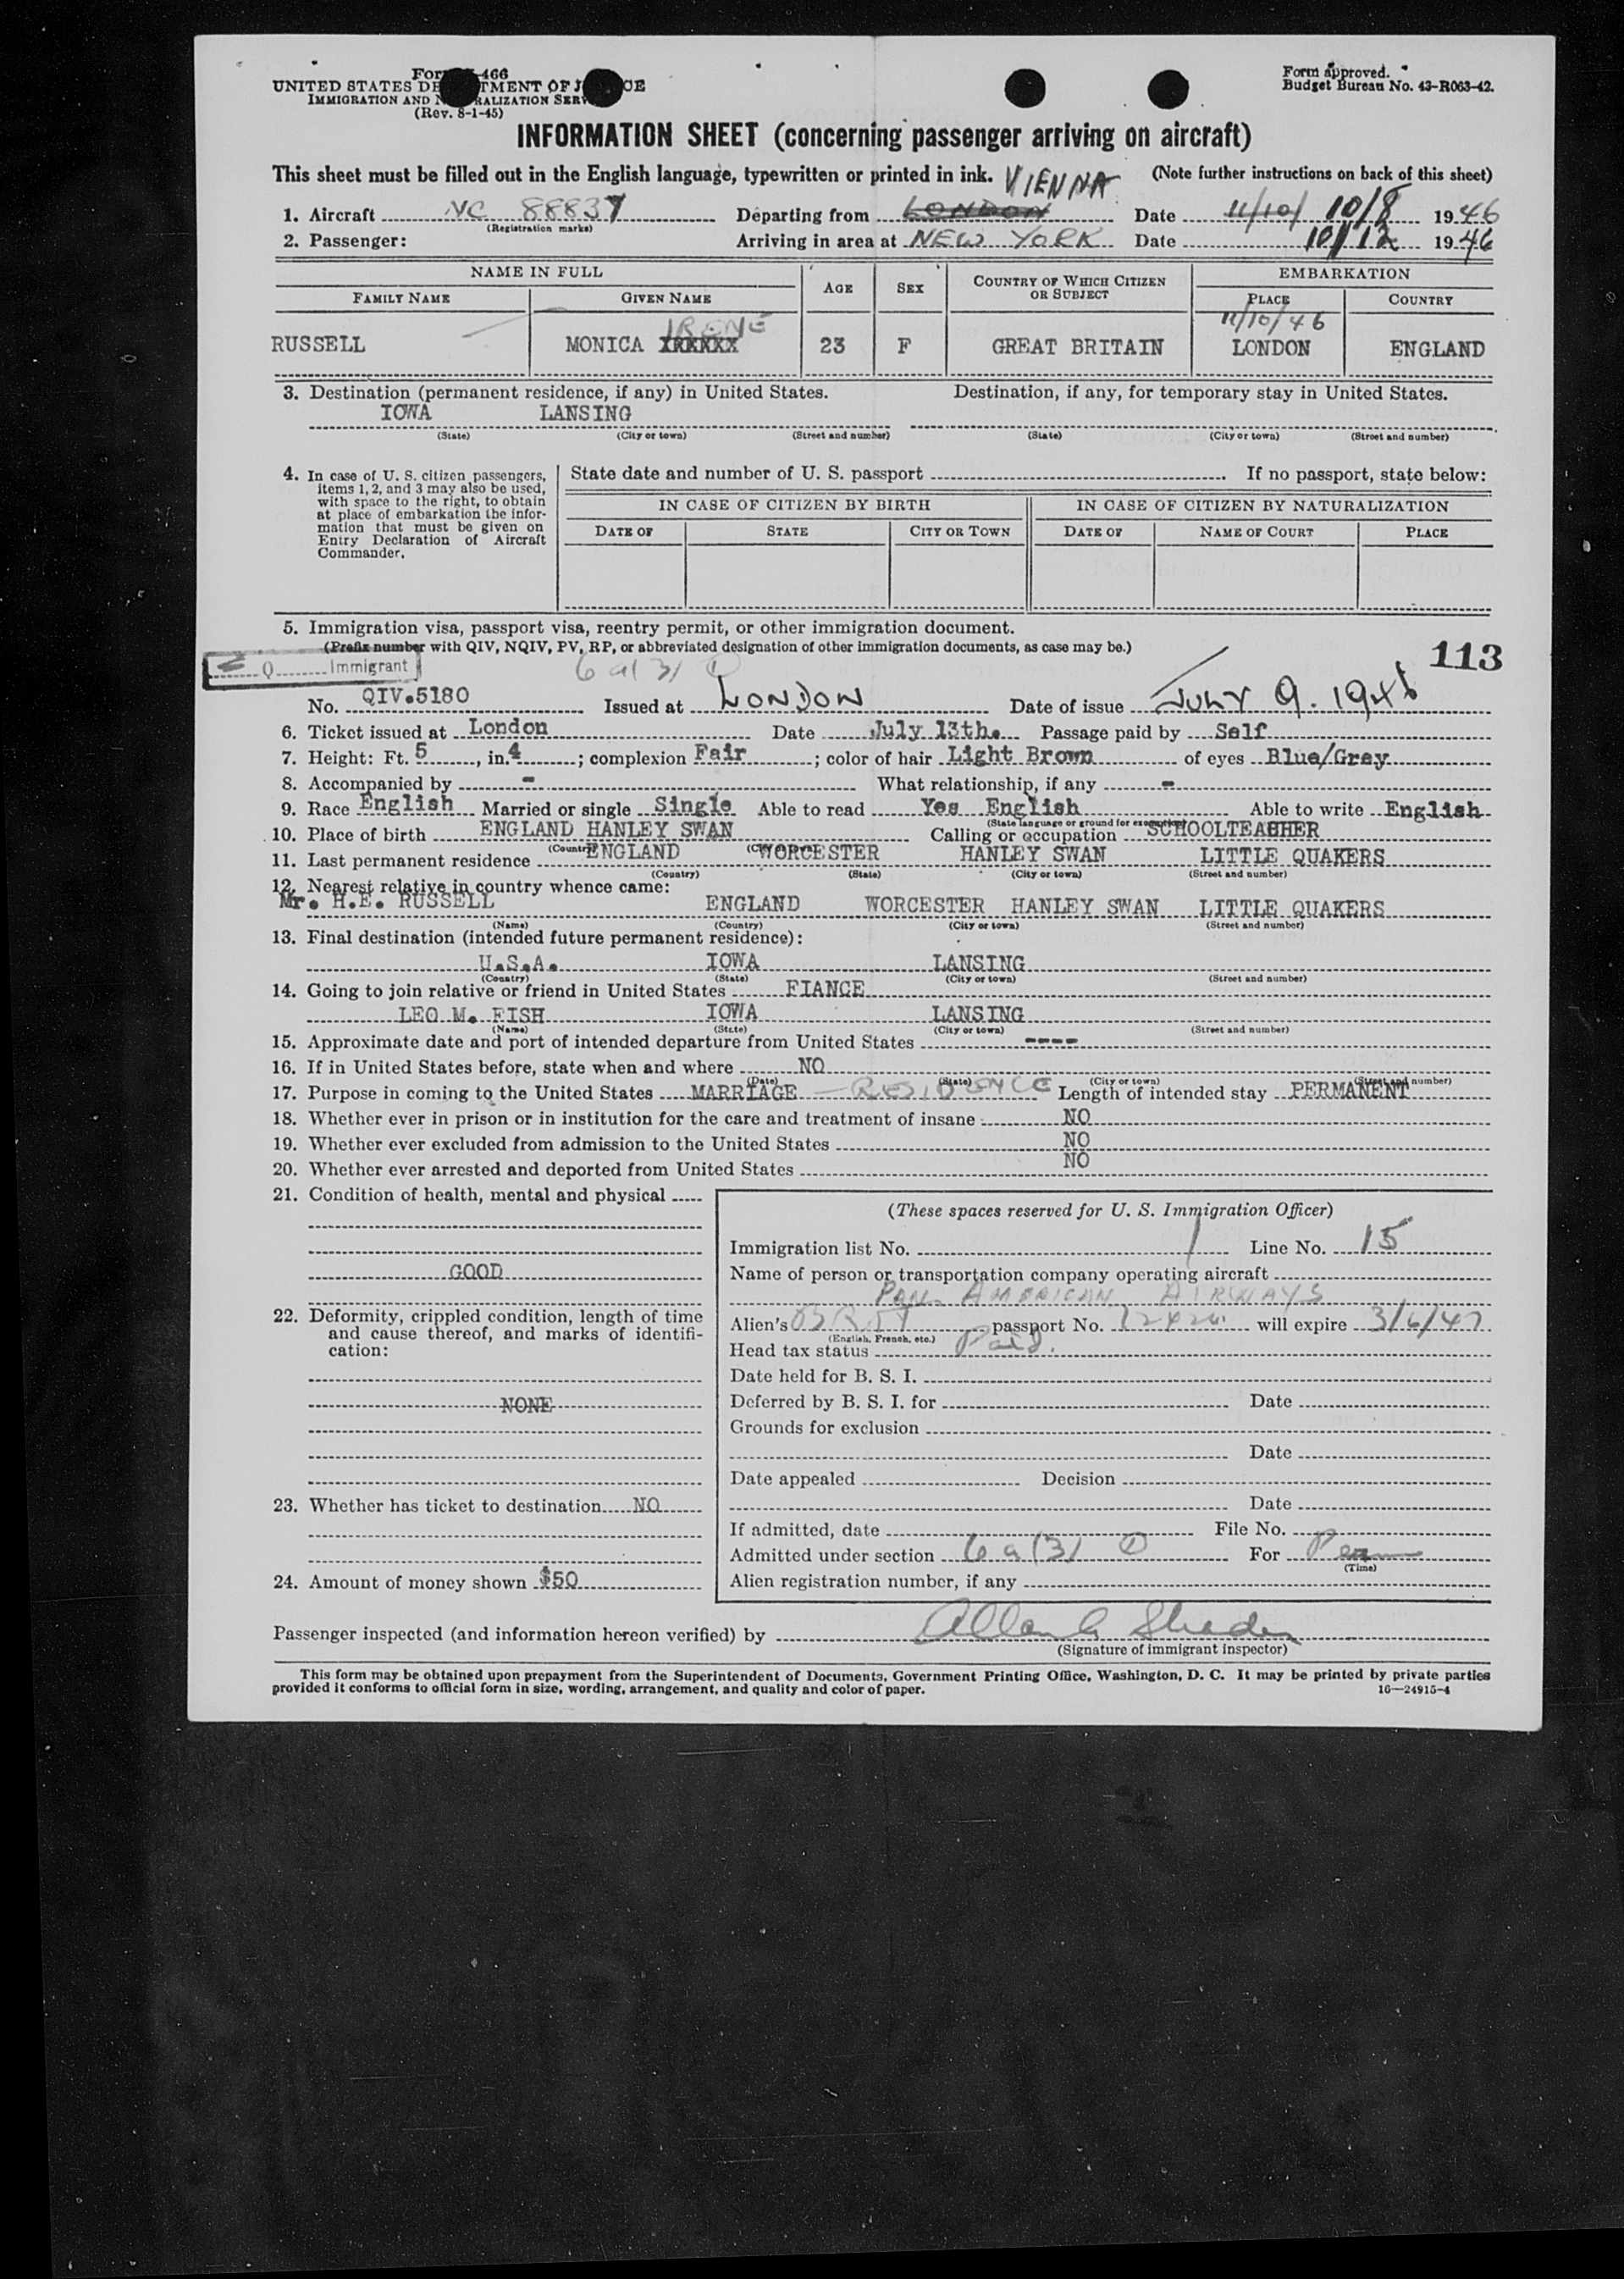 Form 466
UNITED STATES DE TMENT OF J CE
IMMIGRATION AND N RALIZATION SERV
(Rev. 8-1-45)
Form approved.
Budget Bureau No. 43-R063-42.
INFORMATION SHEET (concerning passenger arriving on aircraft)
This sheet must be filled out in the English language, typewritten or printed in ink. VIENNA (Note further instructions on back of this sheet)
1. Aircraft NC 88837 Departing from LONDON Date 11/10/ 10/8 1946
(Registration marks)
2. Passenger: Arriving in area at NEW YORK Date 10/12 1946
NAME IN FULL AGE SEX COUNTRY OF WHICH CITIZEN OR SUBJECT EMBARKATION
FAMILY NAME GIVEN NAME PLACE COUNTRY
IRENE 11/10/46
RUSSELL MONICA 23 F GREAT BRITAIN LONDON ENGLAND
3. Destination (permanent residence, if any) in United States. Destination, if any, for temporary stay in United States.
IOWA LANSING
(State) (City or town) (Street and number) (State) (City or town) (Street and number)
4. In case of U. S. citizen passengers,
items 1, 2, and 3 may also be used,
with space to the right, to obtain
at place of embarkation the infor-
mation that must be given on
Entry Declaration of Aircraft
Commander.
State date and number of U. S. passport If no passport, state below:
IN CASE OF CITIZEN BY BIRTH IN CASE OF CITIZEN BY NATURALIZATION
DATE OF STATE CITY OR TOWN DATE OF NAME OF COURT PLACE
5. Immigration visa, passport visa, reentry permit, or other immigration document.
(Prefix number with QIV, NQIV, PV, RP, or abbreviated designation of other immigration documents, as case may be.) 113
Q Immigrant 6 a(3) 1
No. QIV.5180 Issued at LONDON Date of issue JULY 9. 1946
6. Ticket issued at London Date July 13th. Passage paid by Self
7. Height: Ft. 5, in. 4; complexion Fair; color of hair Light Brown of eyes Blue/Grey
8. Accompanied by - What relationship, if any -
9. Race English Married or single Single Able to read Yes English Able to write English
(State language or ground for exemption)
10. Place of birth ENGLAND HANLEY SWAN Calling or occupation SCHOOLTEACHER
11. Last permanent residence ENGLAND WORCESTER HANLEY SWAN LITTLE QUAKERS
(Country) (State) (City or town) (Street and number)
12. Nearest relative in country whence came:
Mr. H.E. RUSSELL ENGLAND WORCESTER HANLEY SWAN LITTLE QUAKERS
(Name) (Country) (City or town) (Street and number)
13. Final destination (intended future permanent residence):
U.S.A. IOWA LANSING
(Country) (State) (City or town) (Street and number)
14. Going to join relative or friend in United States FIANCE
LEO M. FISH IOWA LANSING
(Name) (State) (City or town) (Street and number)
15. Approximate date and port of intended departure from United States ----
16. If in United States before, state when and where NO
(Date) (State) (City or town) (Street and number)
17. Purpose in coming to the United States MARRIAGE - RESIDENCE Length of intended stay PERMANENT
18. Whether ever in prison or in institution for the care and treatment of insane NO
19. Whether ever excluded from admission to the United States NO
20. Whether ever arrested and deported from United States NO
21. Condition of health, mental and physical
GOOD
22. Deformity, crippled condition, length of time
and cause thereof, and marks of identifi-
cation:
NONE
23. Whether has ticket to destination NO
24. Amount of money shown $50
(These spaces reserved for U. S. Immigration Officer)
Immigration list No. 1 Line No. 15
Name of person or transportation company operating aircraft
PAN AMERICAN AIRWAYS
Alien's BRIT passport No. will expire 3/6/47
(English, French, etc.)
Head tax status Paid.
Date held for B. S. I.
Deferred by B. S. I. for Date
Grounds for exclusion
Date
Date appealed Decision
Date
If admitted, date File No.
Admitted under section 6 a (3) 1 For Perm
(Time)
Alien registration number, if any
Passenger inspected (and information hereon verified) by
(Signature of immigrant inspector)
This form may be obtained upon prepayment from the Superintendent of Documents, Government Printing Office, Washington, D. C. It may be printed by private parties
provided it conforms to official form in size, wording, arrangement, and quality and color of paper. 16—24915-4